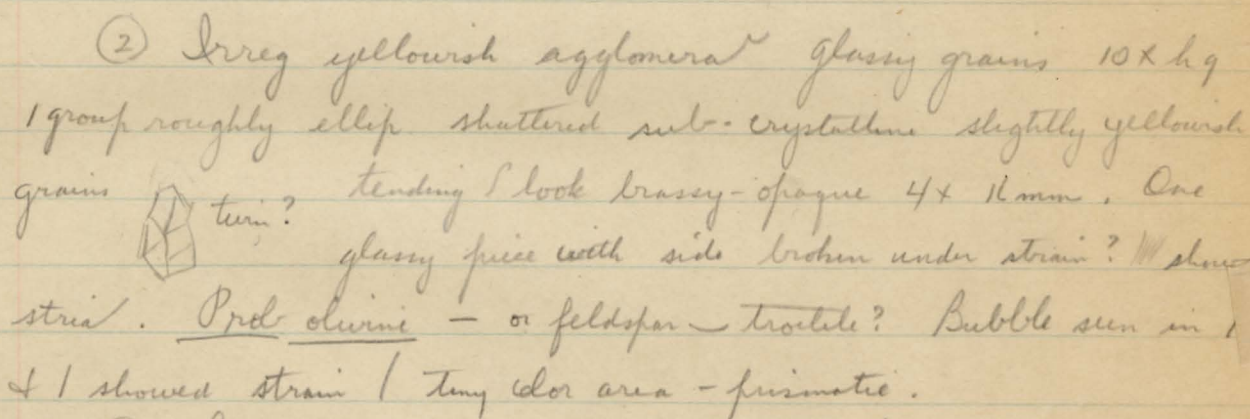 ② Irreg yellowish agglomera glassy grains 10 x h g
1 group roughly ellip. shattered sub-crystalline slightly yellowish
grains twin? tending look brassy-opaque 4 x mm. One
glassy piece with side broken under strain? show
stria. Prob olivine — or feldspar — troilite? Bubble seen in 1
& 1 showed strain / tiny color area - prismatic.